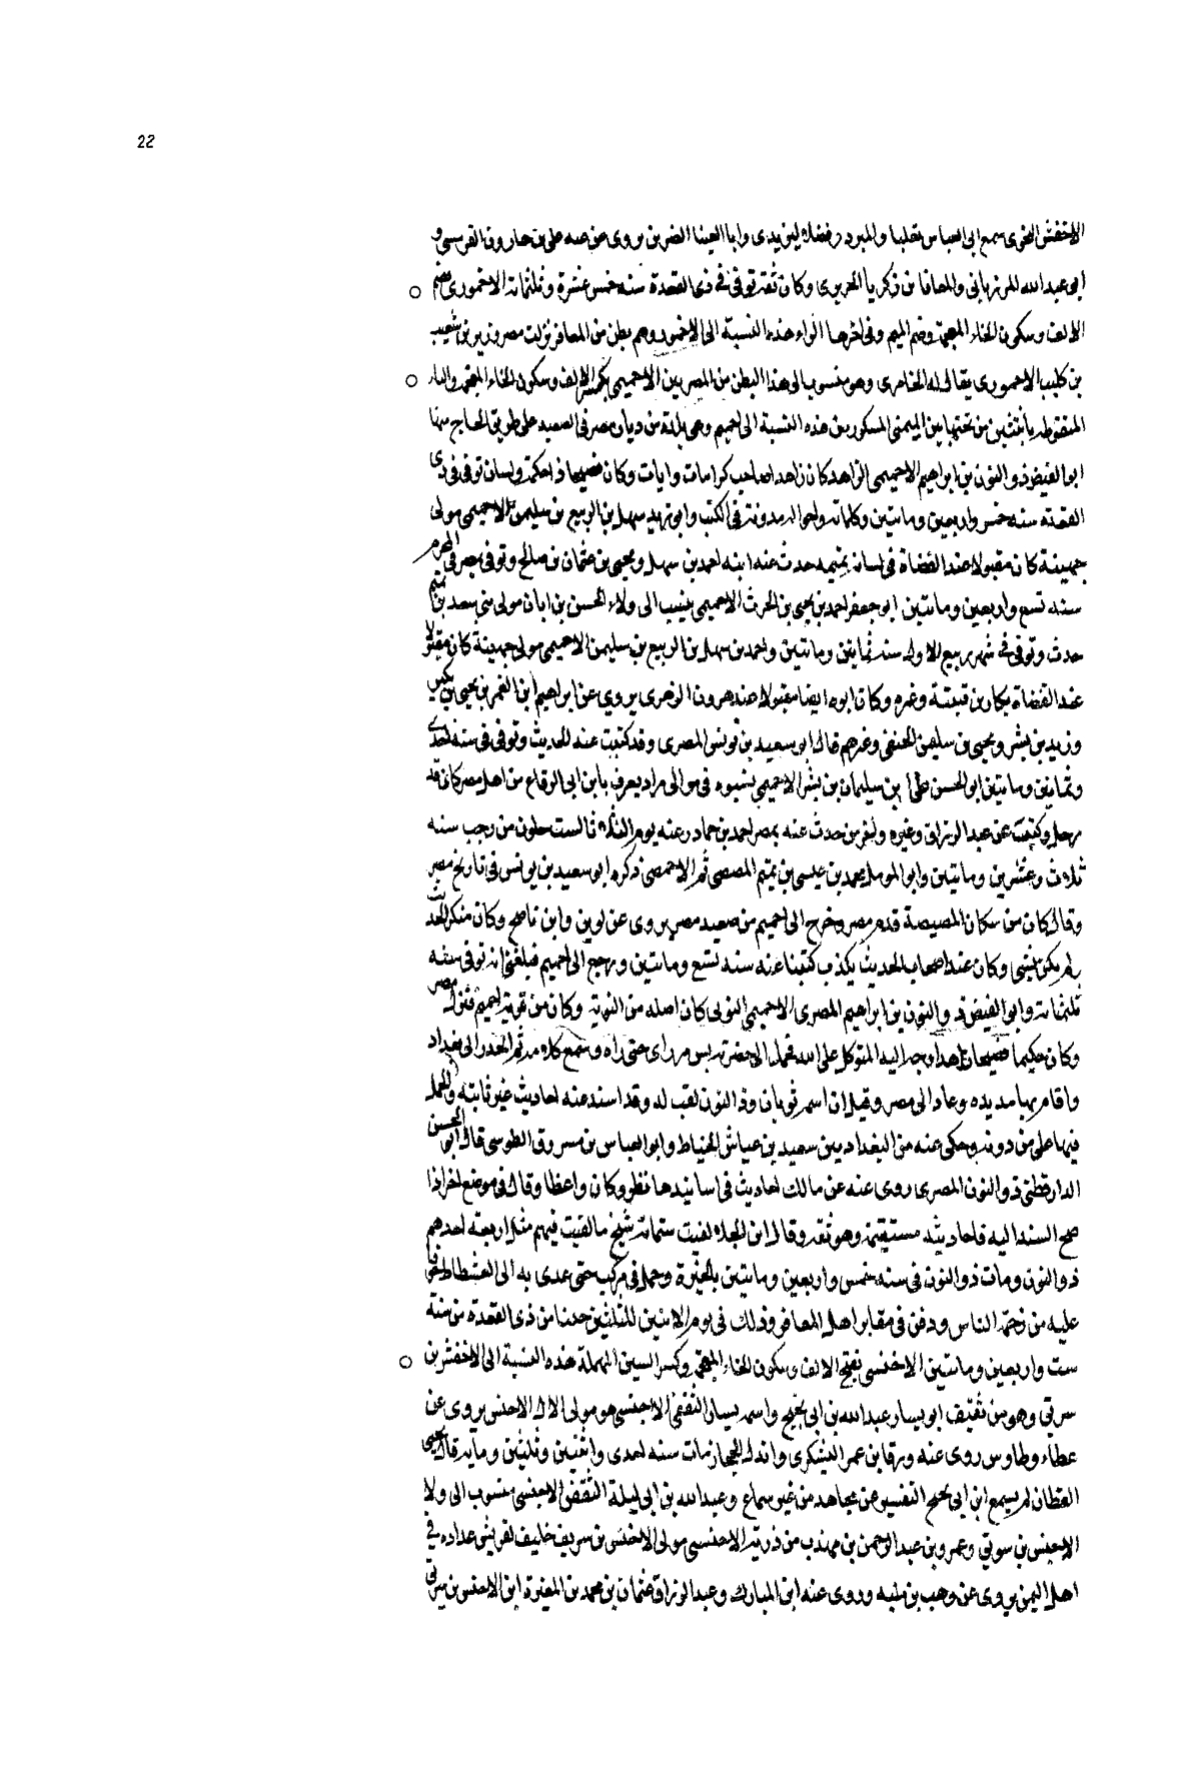 22
الاخفش النحوى سمع ابى العباس ثعلبا والمبرد وفضلا ليزيدى وابا العينا الضرير روى عنه على بن هارون القرميسى و
ابو عبد الله المرزبانى والمعافا بن زكريا الجريرى وكان ثقة توفى فى ذى القعدة سنه خمس عشرة وثلثمائة الاخمورى بضم
الالف وسكون الخاء المعجمة وضم الميم وفى اخرها الراء هذه النسبة الى الاخمور وهم بطن من المعافر نزلت مصر وزير بن شعيب
بن كليب الاخمورى يقال له الخامرى وهو منسوب الى هذا البطن من المصريين الاخميمى بكسر الالف وسكون الخاء المعجمة والياء
المنقوطة باثنتين من تحتها بين الميمين المكسورين هذه النسبة الى اخميم وهى بلدة من ديار مصر فى الصعيد على طريق الحاج منها
ابو الفيض ذو النون بن ابراهيم الاخميمى الزاهد كان زاهدا صاحب كرامات وايات وكان فصيحا ذا حكمة ولسان توفى فى ذى
القعده سنه خمس واربعين ومائتين وكلماته واحواله مدونة فى الكتب وابو يزيد سهل بن الربيع بن سليمن الاخميمى مولى
جهينة كان مقبولا عند القضاة فى لسانه تمتمه حدث عنه ابنه احمد بن سهل ويحيى بن عثمان بن صالح وتوفى بمصر فى المحرم
سنه تسع واربعين ومائتين ابو جعفر احمد بن يحيى بن الحرث الاخميمى ينسب الى ولاء الحسن بن ابان مولى بنى سعد بن تميم
حدث وتوفى فى شهر ربيع الاول سنه ثمانين ومائتين واحمد بن سهل بن الربيع بن سليمن الاخميمى مولى جهينة كان مقبولا
عند القضاة بكار بن قتيبة وغيره وكان ابوه ايضا مقبولا عند هرون الزهرى يروى عن ابراهيم ابن الغمر بن يحيى بن بكير
وزيد بن بشر ويحيى بن سليمن الحنفى وغيرهم قال ابو سعيد بن يونس المصرى وقد كتبت عنه الحديث وتوفى فى سنه احدى
وثمانين ومائتين ابو الحسن على بن سليمان بن بشر الاخميمى نسبوه فى موالى مراد يعرف بابن ابى الرقاع من اهل مصر كان قد
رحل وكتب عن عبد الرزاق وغيره واخر من حدث عنه بمصر احمد بن حماد زغبه يوم الثلاثا لست خلون من رجب سنه
ثلاث وعشرين ومائتين وابو الموسل محمد بن عيسى بن تميم المصصى ثم الاخمصى ذكره ابو سعيد بن يونس فى تاريخ مصر
وقال كان من سكان المصيصة قدم مصر وخرج الى اخميم من صعيد مصر يروى عن لوين وابن ناصح وكان منكر الحديث
لم يكن بشى وكان عند اصحاب الحديث يكذب كتبنا عنه سنه تسع ومائتين ورجع الى اخميم فبلغنى انه توفى سنه
ثلثمائة وابو الفيض ذو النون بن ابراهيم المصرى الاخميمى النوبى كان اصله من النوبة وكان من قرية اخميم فنزل مصر
وكان حكيما فصيحا زاهدا وجه اليه المتوكل على الله فحمل الى حضرته بسر من راى حتى راه وسمع كلامه ثم انحدر الى بغداد
واقام بها مديده وعاد الى مصر وقيل ان اسمه ثوبان وذو النون لقب له وقد اسند عنه احاديث غير ثابته والحمل
فيها على من دونه وحكى عنه من البغداديين سعيد بن عياش الخياط وابو العباس بن مسروق الطوسى قال ابو الحسن
الدارقطنى ذو النون المصرى روى عنه عن مالك احاديث فى اسانيدها نظر وكان واعظا وقال فى موضع اخر اذا
صح السند اليه فاحاديثه مستقيمة وهو ثقة وقال ابن الجلاء لقيت ستمائة شيخ ما لقيت فيهم مثل اربعة احدهم
ذو النون ومات ذو النون فى سنه خمس واربعين ومائتين بالجيزة وحمل فى مركب حتى عدى به الى الفسطاط خوفا
عليه من زحمة الناس ودفن فى مقابر اهل المعافر وذلك فى يوم الاثنين لليلتين خلتا من ذى القعدة من سنة
ست واربعين ومائتين الاخنسى بفتح الالف وسكون الخاء المعجمة وكسر السين المهملة هذه النسبة الى الاخنس بن
سرتى وهو من ثقيف ابو يسار عبد الله بن ابى نجيح واسمه يسار الثقفى الاخنسى هو مولى الال الاخنس يروى عن
عطاء وطاوس روى عنه ورقا بن عمر اليشكرى واندل الحجاز مات سنه احدى واثنين وثلثين ومائه قال يحيى
القطان لم يسمع ابن ابى نجيح التفسير عن مجاهد من غير سماع وعبد الله بن ابى ليلة الثقفى الاخنسى منسوب الى ولا
الاخنس بن سوتى وعمرو بن عبد الرحمن بن مهذب من ذرية الاخنسى مولى الاخنس بن سريف حليف لقريش عداده فى
اهل اليمن يروى عن وهب بن منبه وروى عنه ابن المبارك وعبد الرزاق عثمان بن محمد بن المغيرة ابن الاخنس بن سرتى